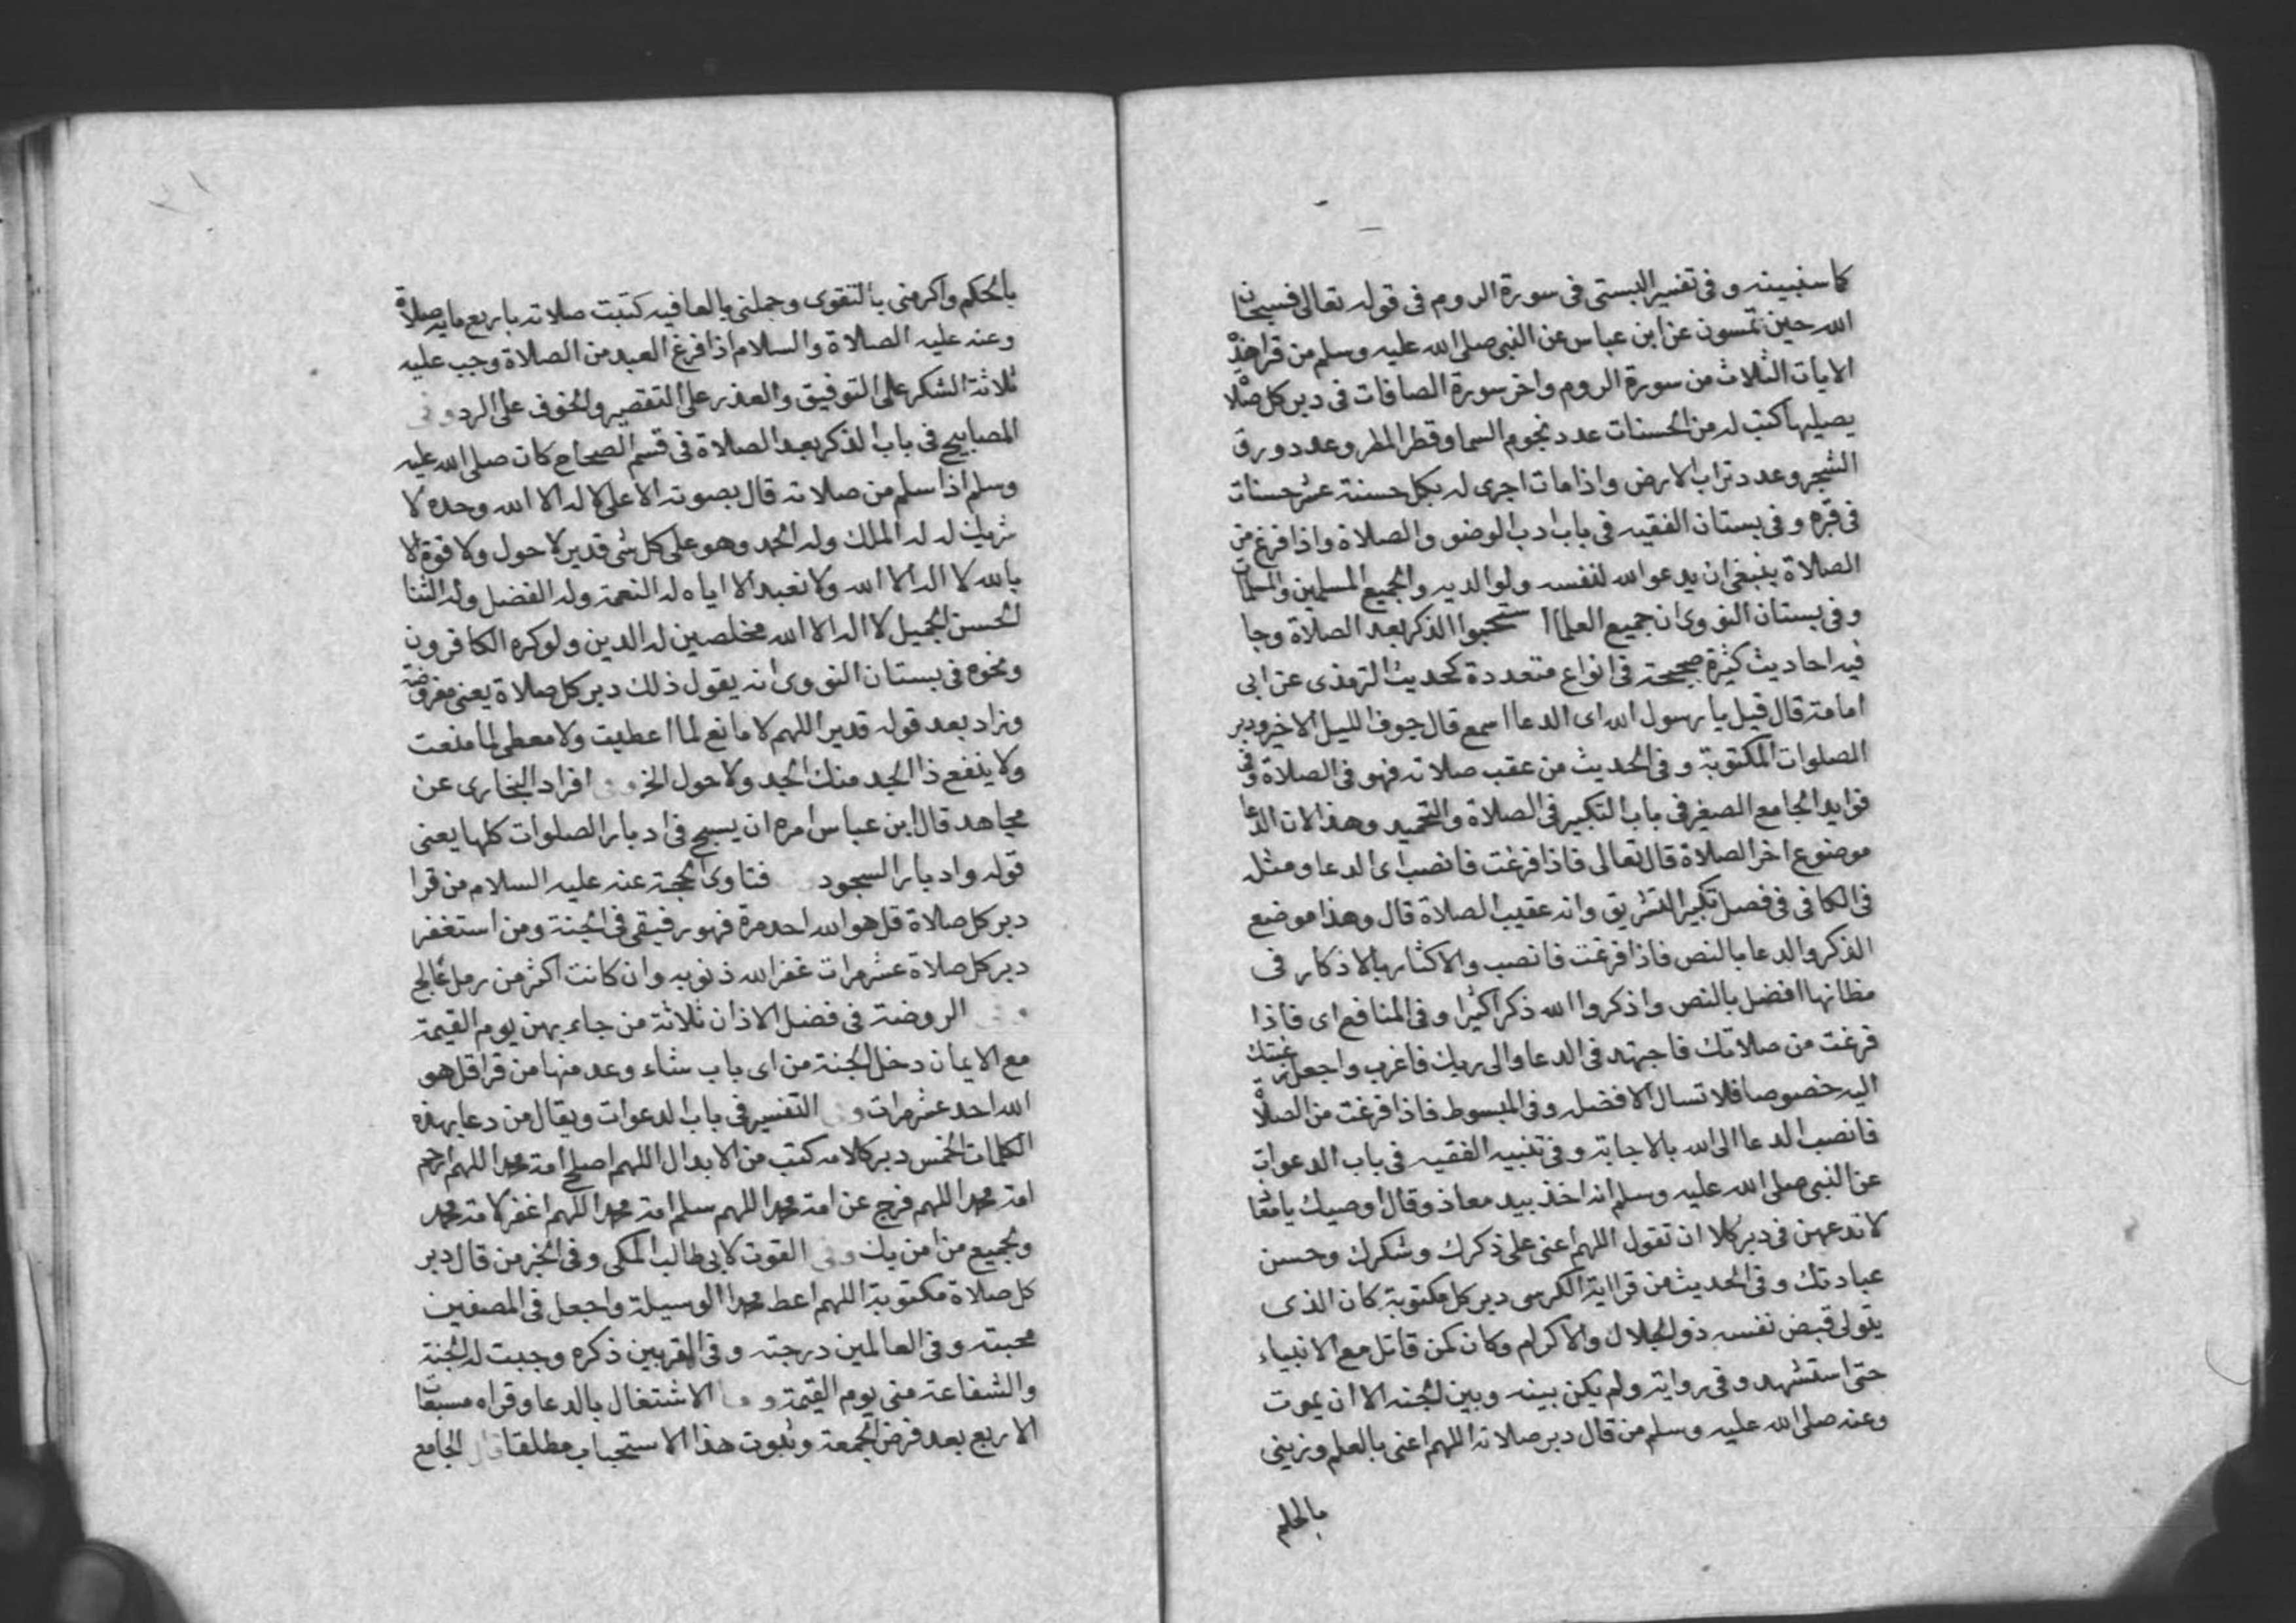 كما سنبينه وفى تفسير البستى فى سورة الروم فى قوله تعالى فسبحان
الله حين تمسون عن ابن عباس عن النبى صلى الله عليه وسلم من قرا هذه
الايات الثلاث من سورة الروم واخر سورة الصافات فى دبر كل صلاة
يصليها كتب له من الحسنات عدد نجوم السما وقطر المطر وعدد ورق
الشجر وعدد تراب الارض واذا مات اجرى له بكل حسنة عشر حسنات
فى قبره وفى بستان الفقيه فى باب ادب الوضو والصلاة واذا فرغ من
الصلاة ينبغى ان يدعو الله لنفسه ولوالديه والجميع المسلمين والمسلمات
وفى بستان النووى ان جميع العلما استحبوا الذكر بعد الصلاة وجا
فيه احاديث كثيرة صحيحة فى انواع متعددة كحديث الترمذى عن ابى
امامة قال قيل يا رسول الله اى الدعا اسمع قال جوف الليل الاخير ودبر
الصلوات المكتوبة وفى الحديث من عقب صلاته فهو فى الصلاة وفى
فوايد الجامع الصغير فى باب التكبير فى الصلاة والتحميد وهذا لان الدعا
موضوع اخر الصلاة قال تعالى فاذا فرغت فانصب اى الدعا ومثله
فى الكافى فى فصل تكبير التشريق وانه عقيب الصلاة قال وهذا موضع
الذكر والدعا بالنص فاذا فرغت فانصب والاكثار بالاذكار فى
مظانها افضل بالنص واذكروا الله ذكرا كثيرا وفى المنافع اى فاذا
فرغت من صلاتك فاجتهد فى الدعا والى ربك فاغرب واجعل رغبتك
اليه خصوصا فلا تسال الا فضله وفى المبسوط فاذا فرغت من الصلاة
فانصب الدعا الى الله بالاجابة وفى تنبيه الفقيه فى باب الدعوات
عن النبى صلى الله عليه وسلم انه اخذ بيد معاذ وقال اوصيك يا معاذ
لا تدعهن فى دبر كلا ان تقول اللهم اعنى على ذكرك وشكرك وحسن
عبادتك وفى الحديث من قرا اية الكرسى دبر كل مكتوبة كان الذى
يتولى قبض نفسه ذو الجلال والاكرام وكان كمن قاتل مع الانبياء
حتى استشهد وفى رواية ولم يكن بينه وبين الجنه الا ان يموت
وعنه صلى الله عليه وسلم من قال دبر صلاته اللهم اعنى بالعلم وزينى
بالحلم
بالحكم واكرمنى بالتقوى وجملنى بالعافيه كتبت صلاته باربع مايه صلاة
وعنه عليه الصلاة والسلام اذا فرغ العبد من الصلاة وجب عليه
ثلاثة الشكر على التوفيق والعذر على التقصير والخوف على الرد وفى
المصابيح فى باب الذكر بعد الصلاة فى قسم الصحاح كان صلى الله عليه
وسلم اذا سلم من صلاته قال بصوته الاعلى لا اله الا الله وحده لا
شريك له له الملك وله الحمد وهو على كل شى قدير لا حول ولا قوة الا
بالله لا اله الا الله ولا نعبد الا اياه له النعمة وله الفضل وله الثنا
الحسن الجميل لا اله الا الله مخلصين له الدين ولو كره الكافرون
ونحوه فى بستان النووى انه يقول ذلك دبر كل صلاة يعنى مفروضة
وزاد بعد قوله قدير اللهم لا مانع لما اعطيت ولا معطى لما منعت
ولا ينفع ذا الجد منك الجد ولا حول الخ وفى افراد البخارى عن
مجاهد قال ابن عباس امره ان يسبح فى ادبار الصلوات كلها يعنى
قوله وادبار السجود فتاوى الحجة عنه عليه السلام من قرا
دبر كل صلاة قل هو الله احد مرة فهو رفيقى فى الجنة ومن استغفر
دبر كل صلاة عشر مرات غفر الله ذنوبه وان كانت اكثر من رمل عالج
وفى الروضة فى فضل الاذان ثلاثة من جاء بهن يوم القيمة
مع الايمان دخل الجنة من اى باب شاء وعد منها من قرا قل هو
الله احد عشر مرات وفى التفسير فى باب الدعوات ويقال من دعا بهذه
الكلمات الخمس دبر كلامه كتب من الابدال اللهم اصلح امة محمد اللهم ارحم
امة محمد اللهم فرج عن امة محمد اللهم سلم امة محمد اللهم اغفر لامة محمد
ولجميع من امن بك وفى القوت لابى طالب المكى وفى الخبر من قال دبر
كل صلاة مكتوبة اللهم اعط محمدا الوسيلة واجعل فى المصطفين
محبته وفى العالمين درجته وفى المقربين ذكره وجبت له الجنة
والشفاعة منى يوم القيمة و الاشتغال بالدعا وقراه مسبعات
الاربع بعد فرض الجمعة وثبوت هذا الاستحباب مطلقا قال الجامع